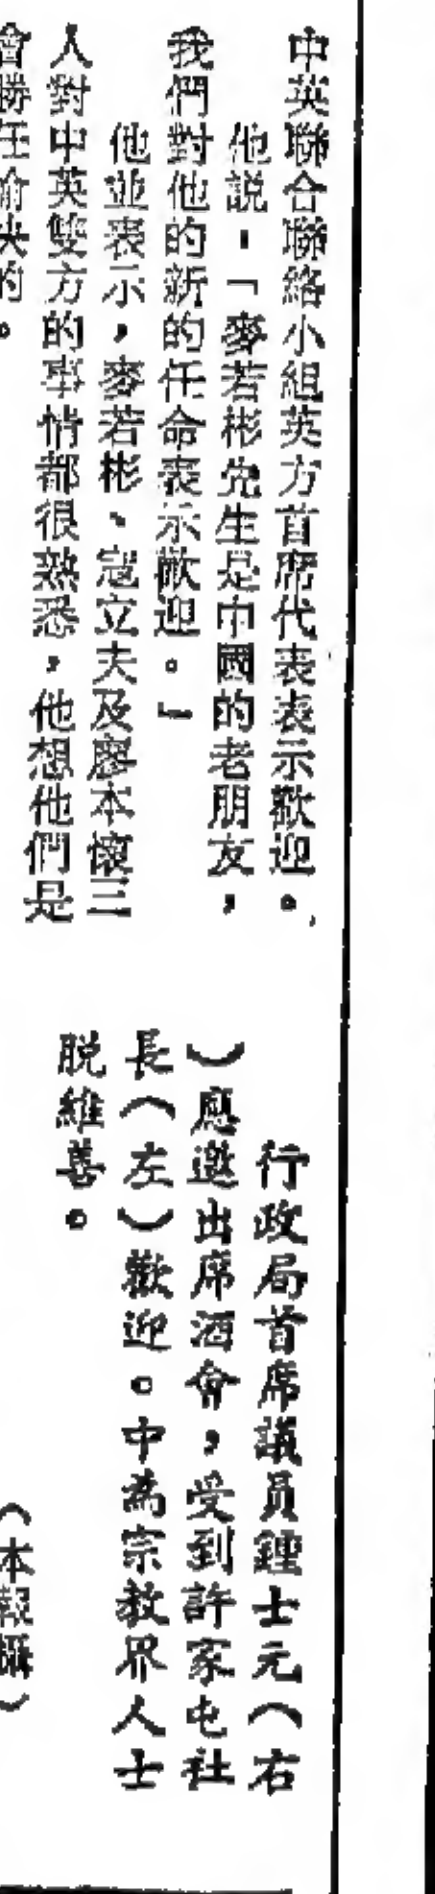 中英聯合聯絡小組英方首席代表表示歡迎。
他說：「麥若彬先生是中國的老朋友，
我們對他的新的任命表示歡迎。」
他並表示，麥若彬、寇立夫及廖本懷三
人對中英雙方的事情都很熟悉，他想他們是
會勝任愉快的。
行政局首席議員鍾士元（右
）應邀出席酒會，受到許家屯社
長（左）歡迎。中為宗教界人士
脱維善。
（本報攝）